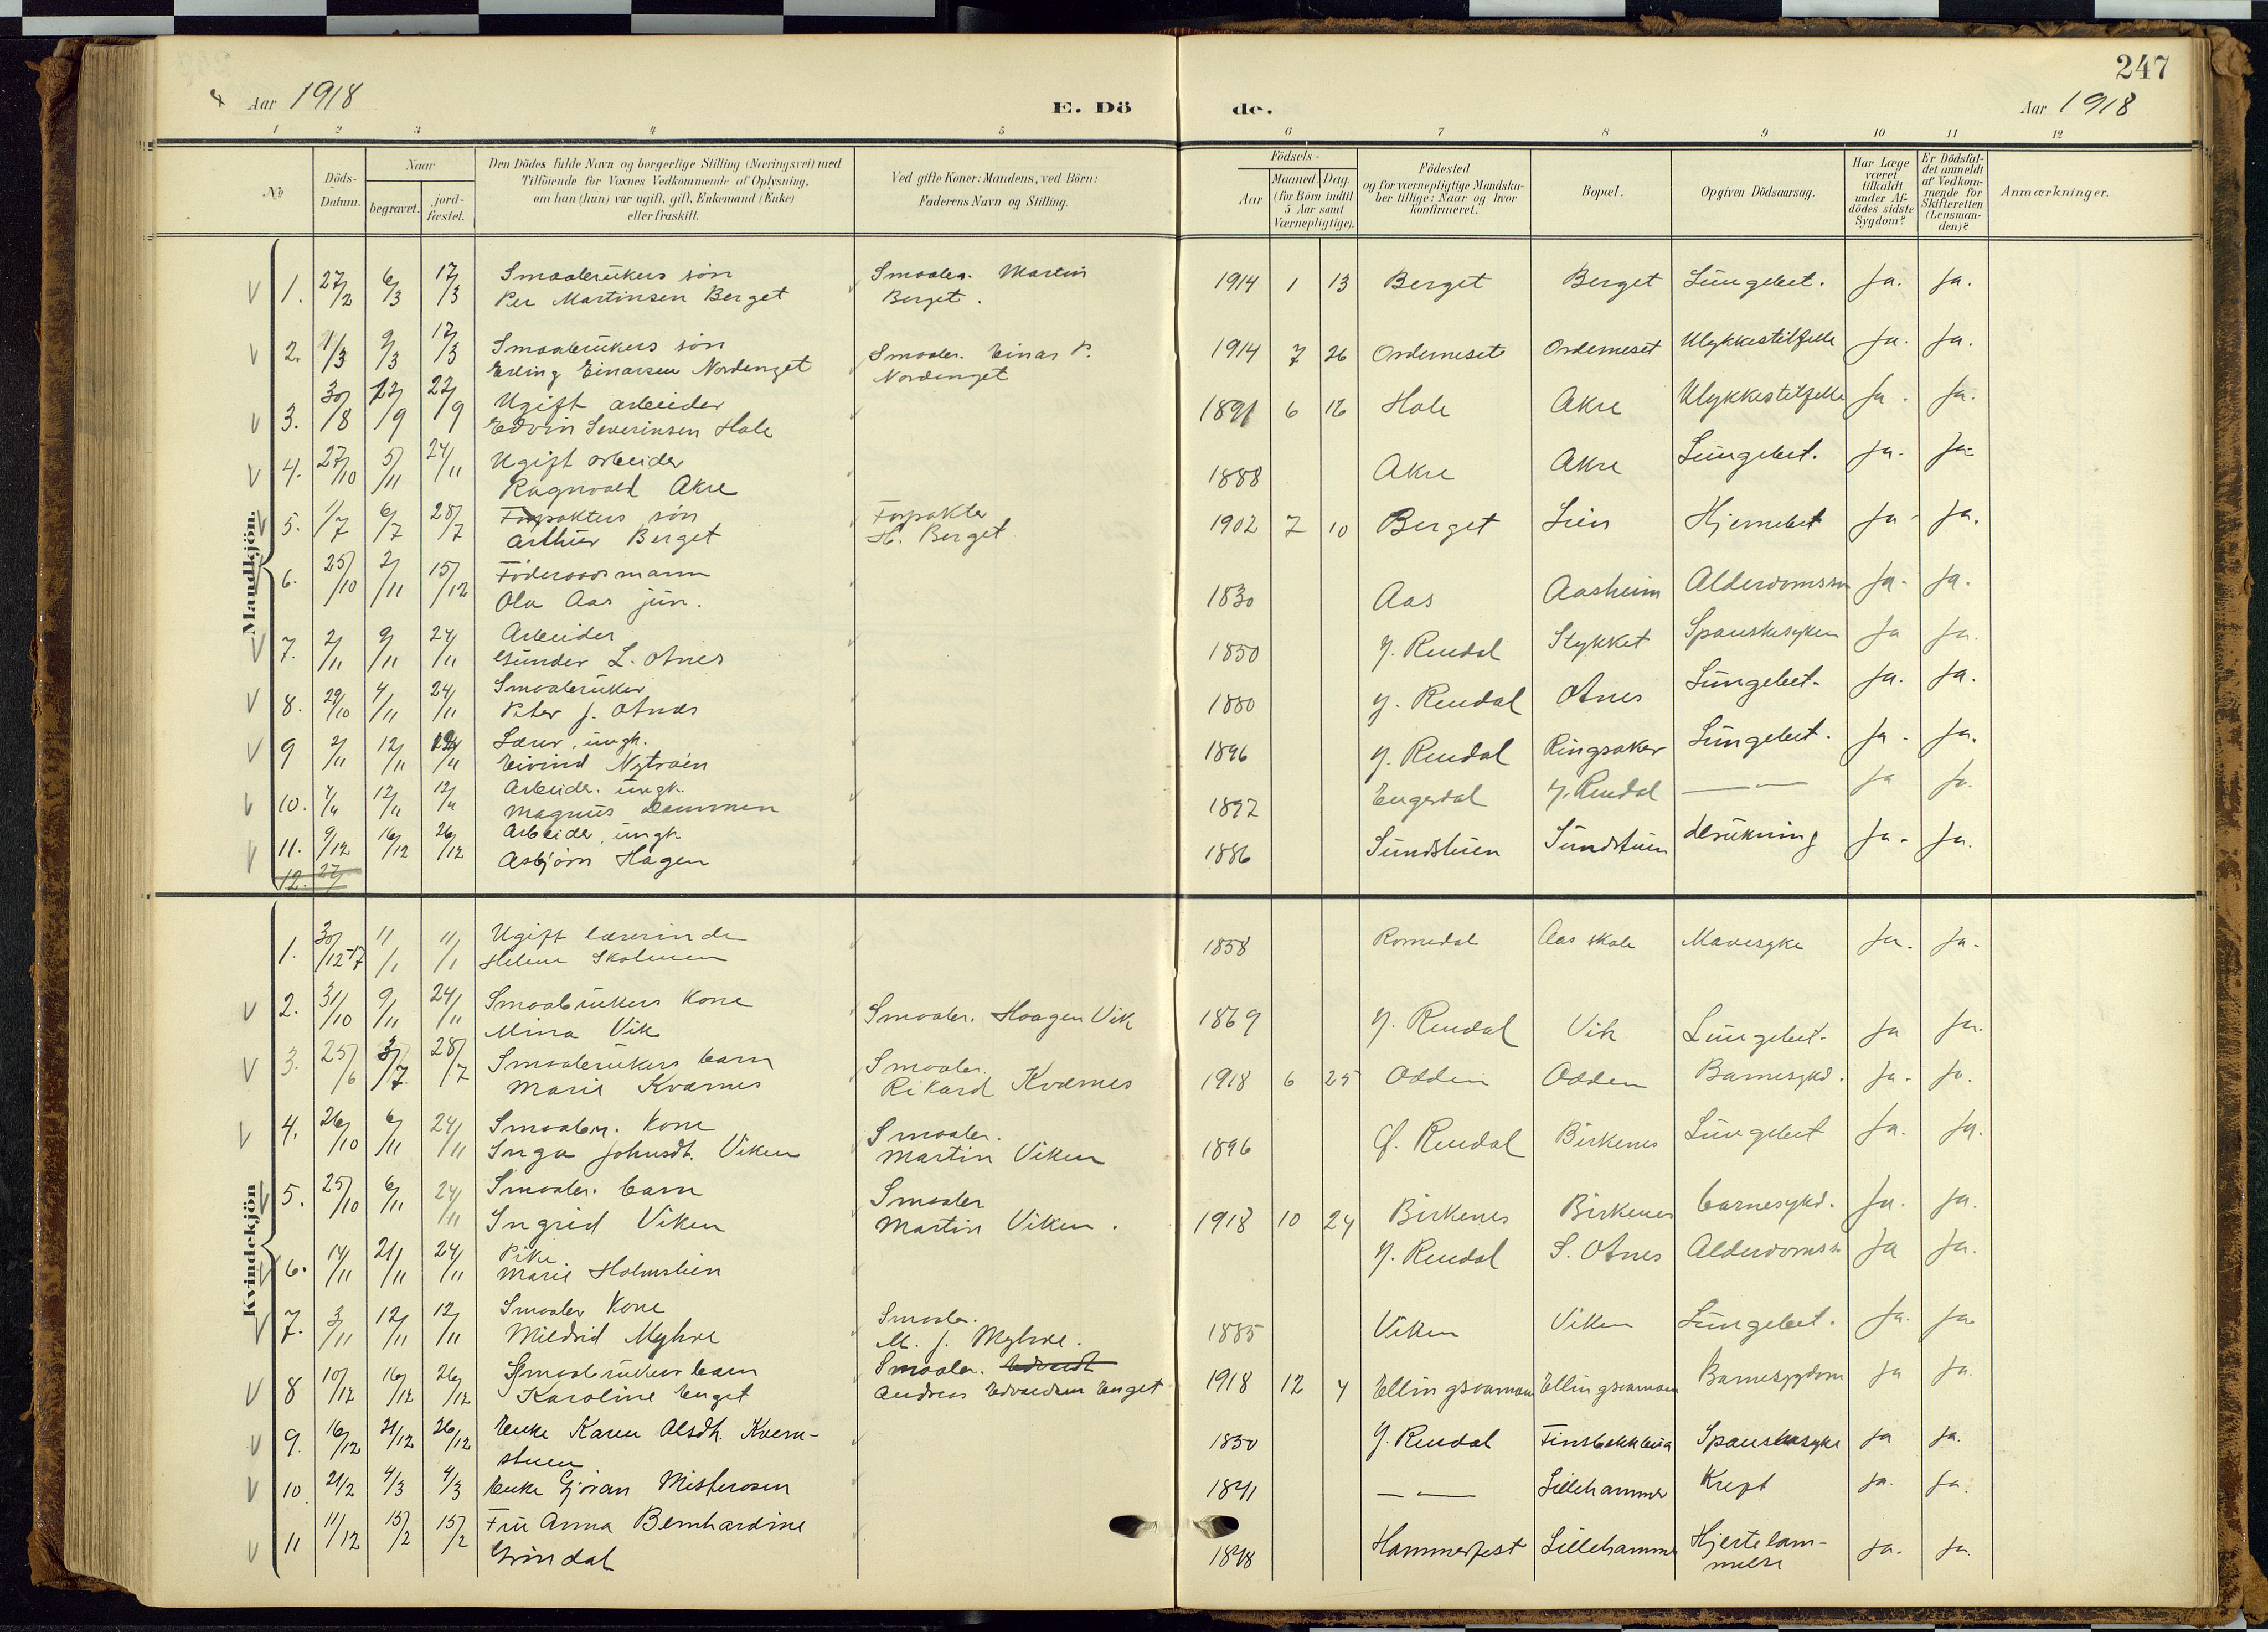 247
Aar 1918
E. Dö
de.
Aar 1918
1 2 3 4 5 6 7 8 9 10 11 12
No
Döds-
Datum.
Naar
begravet.
jord-
fæstet.
Den Dödes fulde Navn og borgerlige Stilling (Næringsvei) med
Tilföiende for Voxnes Vedkommende af Oplysning,
om han (hun) var ugift, gift, Enkemand (Enke)
eller fraskilt.
Ved gifte Koner: Mandens, ved Börn:
Faderens Navn og Stilling.
Födsels-
Aar
Maaned.
Dag.
(for Börn indtil
5 Aar samt
Værnepligtige).
Födested
og for værnepligtige Mandska-
ber tillige: Naar og hvor
konfirmeret.
Bopæl.
Opgiven Dödsaarsag.
Har Læge
været
tilkaldt
under Af-
dödes sidste
Sygdom?
Er Dödsfal-
det anmeldt
af Vedkom-
mende for
Skifteretten
(Lensman-
den)?
Anmærkninger.
Mandkjön.
1. 27/2 6/3 17/3 Smaabrukers sön Smaabr. Martin 1914 1 13 Berget Berget Lungebet. Ja. Ja.
Per Martinsen Berget Berget.
2. 1/3 9/3 17/3 Smaabrukers sön Smaabr. Einar P. 1914 7 26 Ordemeset Ordemeset Ulykkestilfelle Ja. Ja.
Erling Einarsen Nordenget Nordenget
3. 30/8 /9 22/9 Ugift arbeider 1891 6 16 Hole Akre Ulykkestilfelle Ja. Ja.
Edvin Severinsen Hole
4. 27/10 5/11 24/11 Ugift arbeider 1888 Akre Akre Lungebet. Ja. Ja.
Ragnvald Akre
5. 1/7 6/7 28/7 Forpakters sön Forpakter 1902 7 10 Berget Lien Hjernebet Ja. Ja.
Arthur Berget H. Berget
6. 25/10 2/11 15/12 Föderaadsmann 1830 Aas Aasheim Alderdomssv Ja. Ja.
Ola Aas jun.
7. 2/11 9/11 24/11 Arbeider 1850 Y. Rendal Stykket Spanskesyken Ja Ja.
Gunder L. Otnes
8. 29/10 4/11 24/11 Smaabruker 1880 Y. Rendal Otnes Lungebet. Ja. Ja.
Peter J. Otnes
9 2/11 12/11 /11 Lærer, ungk. 1896 Y. Rendal Ringsaker Lungebet. Ja. Ja.
Eivind Nytröen
10. /11 12/11 12/11 Arbeider. ungk. 1897 Engerdal Y. Rendal — — Ja Ja.
Magnus Dammen
11. 9/12 16/12 26/12 Arbeider, ungk. 1886 Sundstuen Sundstuen drukning Ja. Ja.
Asbjörn Hagen
12. 27/
Kvindekjön
1. 30/12-17 11/1 11/1 Ugift lærerinde 1858 Romedal Aas skole Mavesyke Ja. Ja.
Helene Skolmen
2. 31/10 9/11 24/11 Smaabrukers kone Smaabr. Haagen Vik 1869 Y. Rendal Vik Lungebet. Ja Ja.
Mina Vik
3. 25/6 3/7 28/7 Smaabrukers barn Smaabr. 1918 6 25 Odden Odden Barnesykd. Ja. Ja.
Marie Kværnes Rikard Kværnes
4. 26/10 6/11 24/11 Smaabr. kone Smaabr. 1896 Ø. Rendal Birkenes Lungebet Ja. Ja.
Inga Johnsdt. Viken Martin Viken
5. 25/10 6/11 24/11 Smaabr. barn Smaabr 1918 10 24 Birkenes Birkenes barnesykd. Ja. Ja.
Ingrid Viken Martin Viken.
6. 14/11 21/11 24/11 Pike Y. Rendal S. Otnes Alderdomss Ja Ja.
Marie Holmstien
7. 3/11 12/11 12/11 Smaabr Kone Smaabr. 1885 Viken Viken Lungebet. Ja. Ja.
Mildrid Myhre M. J. Myhre.
8 10/12 16/12 26/12 Smaabrukers barn Smaabr. Edvardt 1918 12 4 Ellingsvamoen Ellingsvamoen Barnesygdom Ja Ja.
Karoline Enget Andreas Edvardsen Enget
9. 16/12 21/12 26/12 Enke Karen Olsdt. Kvern- 1830 Y. Rendal Finstbakkbua Spanskesyke Ja Ja.
stuen
10 21/2 4/3 4/3 Enke Gjöran Misterosen 1841 — — Lillehammer Kreft Ja. Ja.
11 11/12 15/2 15/2 Fru Anna Bernhardine 1848 Hammerfest Lillehammer Hjertelam- Ja. Ja.
Gröndal melse